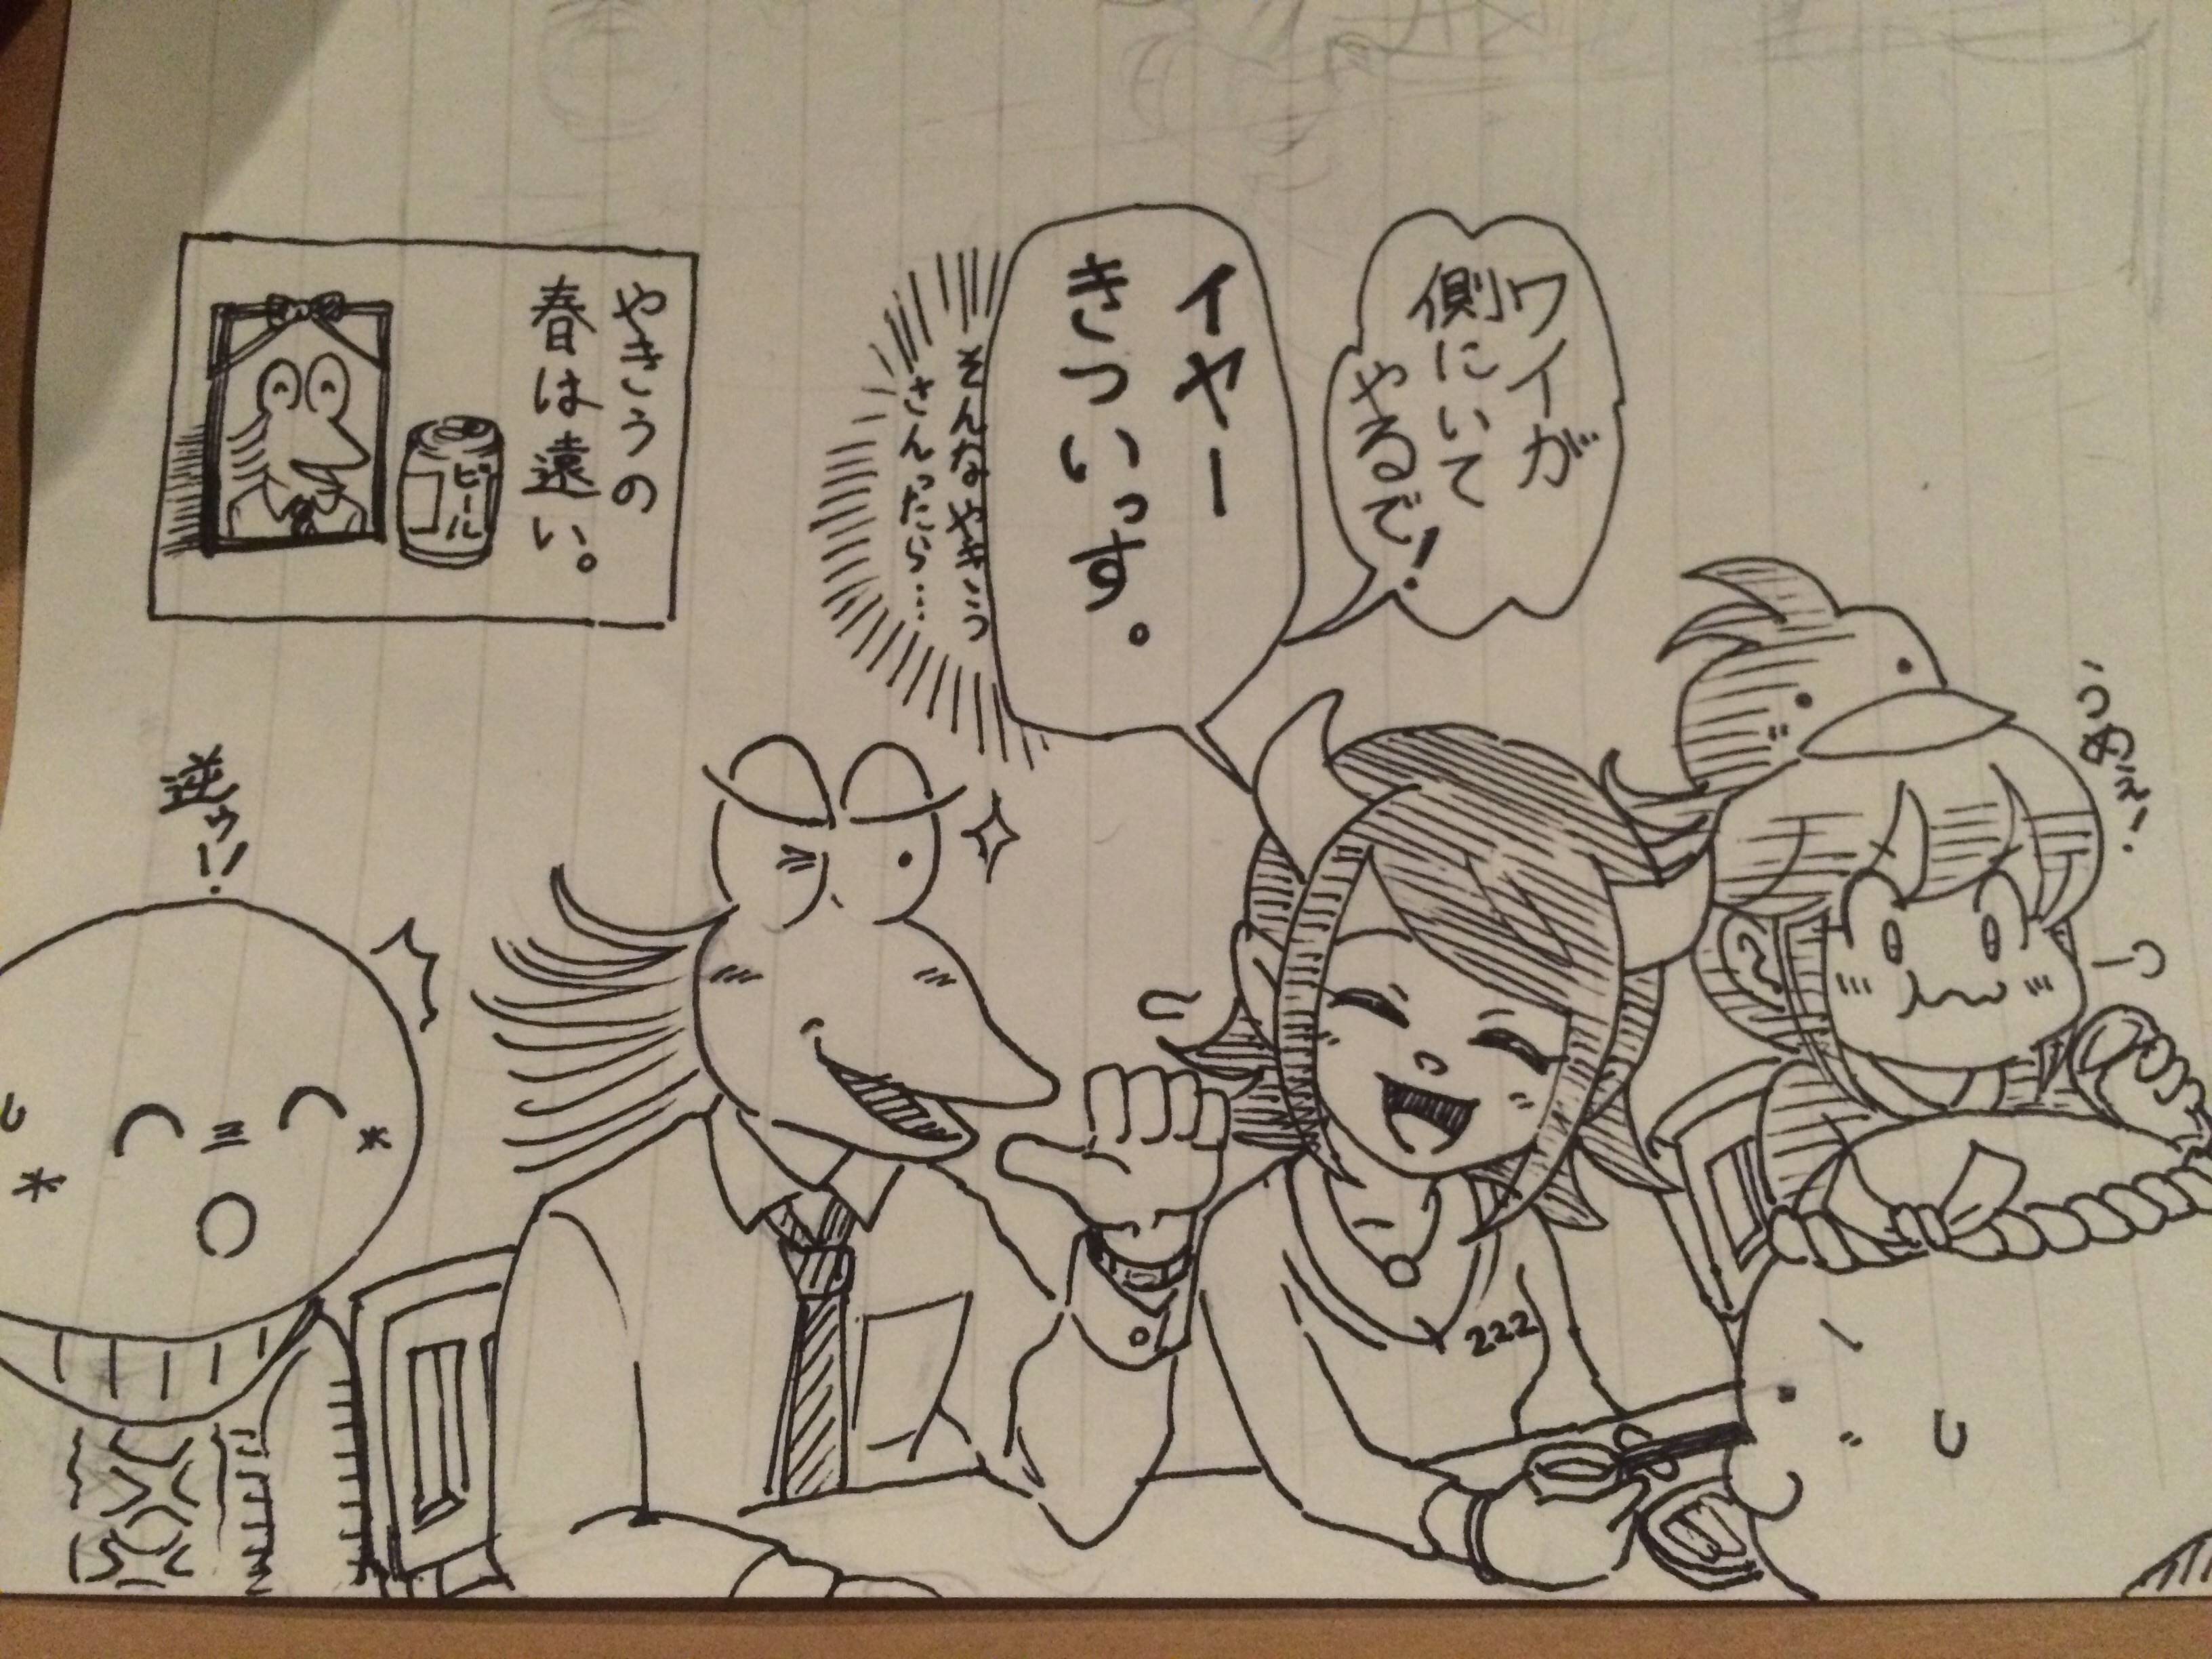 ワイが
側にいて
やるで!
イヤー
きついっす。
そんなやきう
さんったら…
やきうの
春は遠い。
ビール
うめぇ!
逆ゥ!!
222